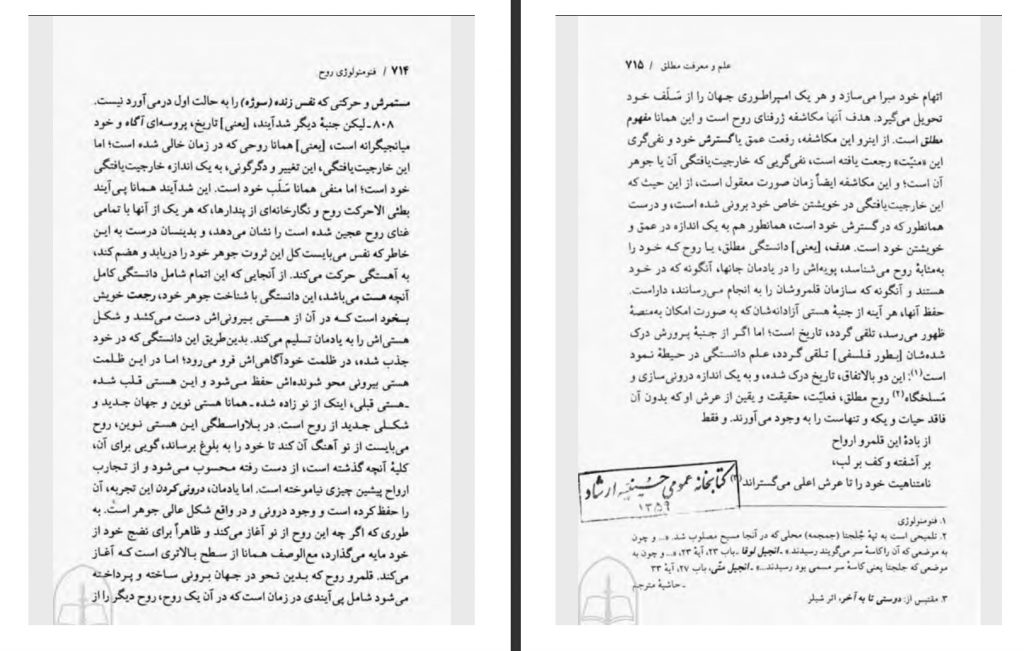 ۷۱۴ / فنومنولوژی روح
مستمرش و حرکتی که نفس زنده (سوژه) را به حالت اول درمی‌آورد نیست.
۸۰۸ـ لیکن جنبهٔ دیگر شدآیند، [یعنی] تاریخ، پروسه‌ای آگاه و خود
میانجیگرانه است، [یعنی] همانا روحی که در زمان خالی شده است؛ اما
این خارجیت‌یافتگی، این تغییر و دگرگونی، به یک اندازه خارجیت‌یافتگی
خود است؛ اما منفی همانا سَلْب خود است. این شدآیند همانا پی‌آیند
بطئی الاحرکت روح و نگارخانه‌ای از پندارها، که هر یک از آنها با تمامی
غنای روح عجین شده است را نشان می‌دهد، و بدینسان درست به این
خاطر که نفس می‌بایست کل این ثروت جوهر خود را دریابد و هضم کند،
به آهستگی حرکت می‌کند. از آنجایی که این اتمام شامل دانستگی کامل
آنچه هست می‌باشد، این دانستگی با شناخت جوهر خود، رجعت خویش
بخود است که در آن از هستی بیرونی‌اش دست می‌کشد و شکل
هستی‌اش را به یادمان تسلیم می‌کند. بدین‌طریق این دانستگی که در خود
جذب شده، در ظلمت خودآگاهی‌اش فرو می‌رود؛ اما در این ظلمت
هستی بیرونی محو شونده‌اش حفظ می‌شود و این هستی قلب شده
ـ هستی قبلی، اینک از نو زاده شده ـ همانا هستی نوین و جهان جدید و
شکلی جدید از روح است. در بلاواسطگی این هستی نوین، روح
می‌بایست از نو آهنگ آن کند تا خود را به بلوغ برساند، گویی برای آن،
کلیهٔ آنچه گذشته است، از دست رفته محسوب می‌شود و از تجارب
ارواح پیشین چیزی نیاموخته است. اما یادمان، درونی کردن این تجربه، آن
را حفظ کرده است و وجود درونی و در واقع شکل عالی جوهر است. به
طوری که اگر چه این روح از نو آغاز می‌کند و ظاهراً برای نضج خود از
خود مایه می‌گذارد، مع‌الوصف همانا از سطح بالاتری است که آغاز
می‌کند. قلمرو روح که بدین نحو در جهان برونی ساخته و پرداخته
می‌شود شامل پی‌آیندی در زمان است که در آن یک روح، روح دیگر را از
علم و معرفت مطلق / ۷۱۵
اتهام خود مبرا می‌سازد و هر یک امپراطوری جهان را از سَلَف خود
تحویل می‌گیرد. هدف آنها مکاشفه ژرفنای روح است و این همانا مفهوم
مطلق است. از اینرو این مکاشفه، رفعت عمق یا گسترش خود و نفی‌گری
این «منیّت» رجعت یافته است، نفی‌گریی که خارجیت‌یافتگی آن یا جوهر
آن است؛ و این مکاشفه ایضاً زمان صورت معقول است، از این حیث که
این خارجیت‌یافتگی در خویشتن خاص خود برونی شده است، و درست
همانطور که در گسترش خود است، همانطور هم به یک اندازه در عمق و
خویشتن خود است. هدف، [یعنی] دانستگی مطلق، یا روح که خود را
به‌مثابهٔ روح می‌شناسد، پویه‌اش را در یادمان جانها، آنگونه که در خود
هستند و آنگونه که سازمان قلمروشان را به انجام می‌رسانند، داراست.
حفظ آنها، هر آینه از جنبهٔ هستی آزادانه‌شان که به صورت امکان به‌منصهٔ
ظهور می‌رسد، تلقی گردد، تاریخ است؛ اما اگر از جنبهٔ پرورش درک
شده‌شان [بطور فلسفی] تلقی گردد، علم دانستگی در حیطهٔ نمود
است(۱): این دو بالاتفاق، تاریخ درک شده، و به یک اندازه درونی‌سازی و
مَسلخگاه(۲) روح مطلق، فعلیّت، حقیقت و یقین از عرش او که بدون آن
فاقد حیات و یکه و تنهاست را به وجود می‌آورند. و فقط
از بادهٔ این قلمرو ارواح
بر آشفته و کف بر لب،
نامتناهیت خود را تا عرش اعلی می‌گستراند(۳)
کتابخانه عمومی حسینیه ارشاد
۱۳۵۹
۱. فنومنولوژی
۲. تلمیحی است به تپهٔ جُلجتا (جمجمه) محلی که در آنجا مسیح مصلوب شد. «... و چون
به موضعی که آن را کاسهٔ سر می‌گویند رسیدند.» ـ انجیل لوقا ـ باب ۲۳، آیهٔ ۲۳، «... و چون به
موضعی که جلجتا یعنی کاسهٔ سر مسمی بود رسیدند...» ـ انجیل متّی، باب ۲۷، آیهٔ ۳۳
ـ حاشیهٔ مترجم
۳. مقتبس از: دوستی تا به آخر، اثر شیلر